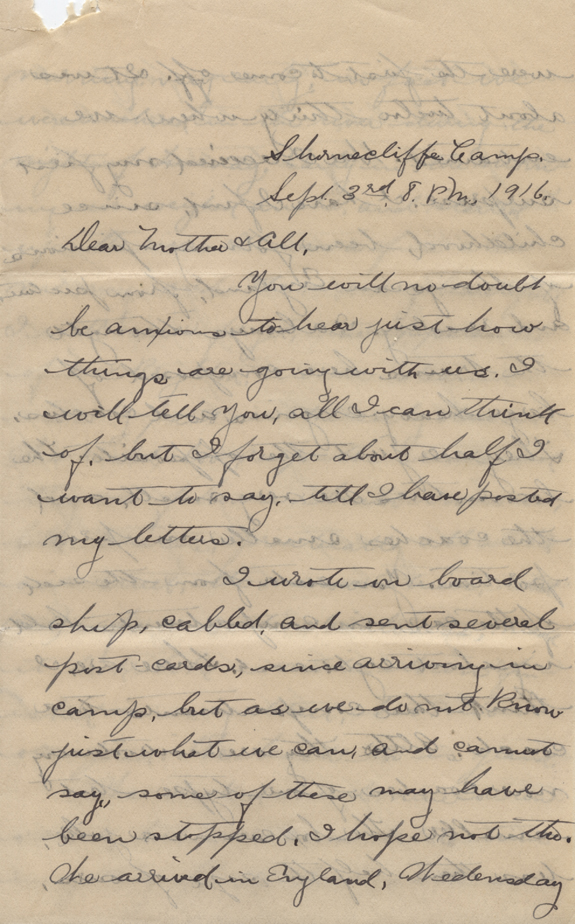 Shorncliffe Camp.
Sept. 3rd. 8. P.M. 1916.
Dear Mother & All,
You will no doubt
be anxious to hear just how
things are going with us. I
will tell you, all I can think
of, but I forget about half I
want to say, till I have posted
my letters.
I wrote on board
ship, cabled, and sent several
post-cards, since arriving in
camp, but as we do not know
just what we can, and cannot
say, some of these may have
been stopped, I hope not tho.
We arrived in England, Wedensday